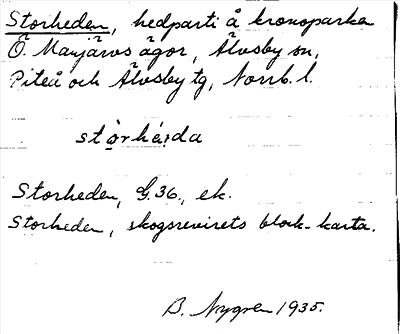 Storheden, hedparti å kronoparken
Ö. Manjärvs ägor, Älvsby sn,
Piteå och Älvsby tg, Norrb. l.
stó̧rhȩ́da
Storheden, G.36., ek.
Storheden, skogsrevirets block-karta.
B. Nygren 1935.